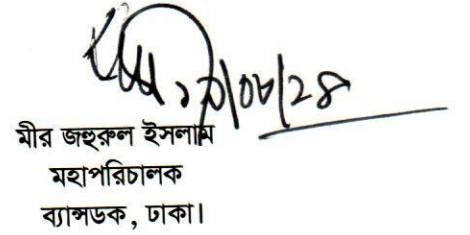 মীর জহুরুল ইসলাম
মহাপরিচালক
ব্যান্সডক, ঢাকা।